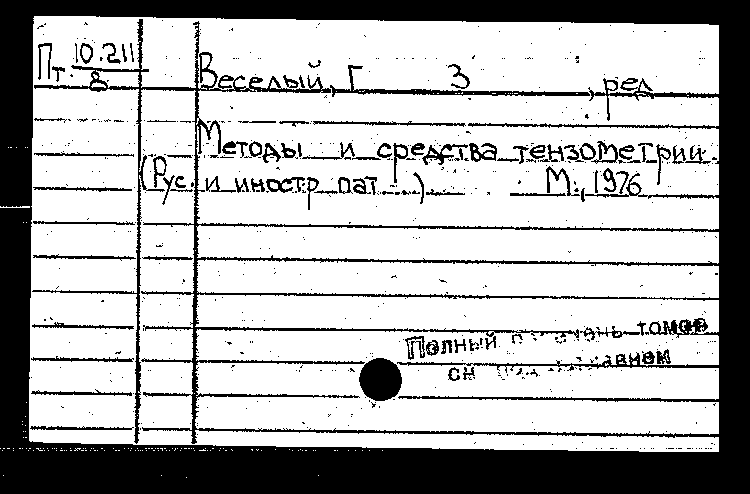 Пт. 10.211
8
Веселый, Г З , ред
Методы и средства тензометрии.
(Рус. и иностр пат...) М., 1976
Полный томов
см